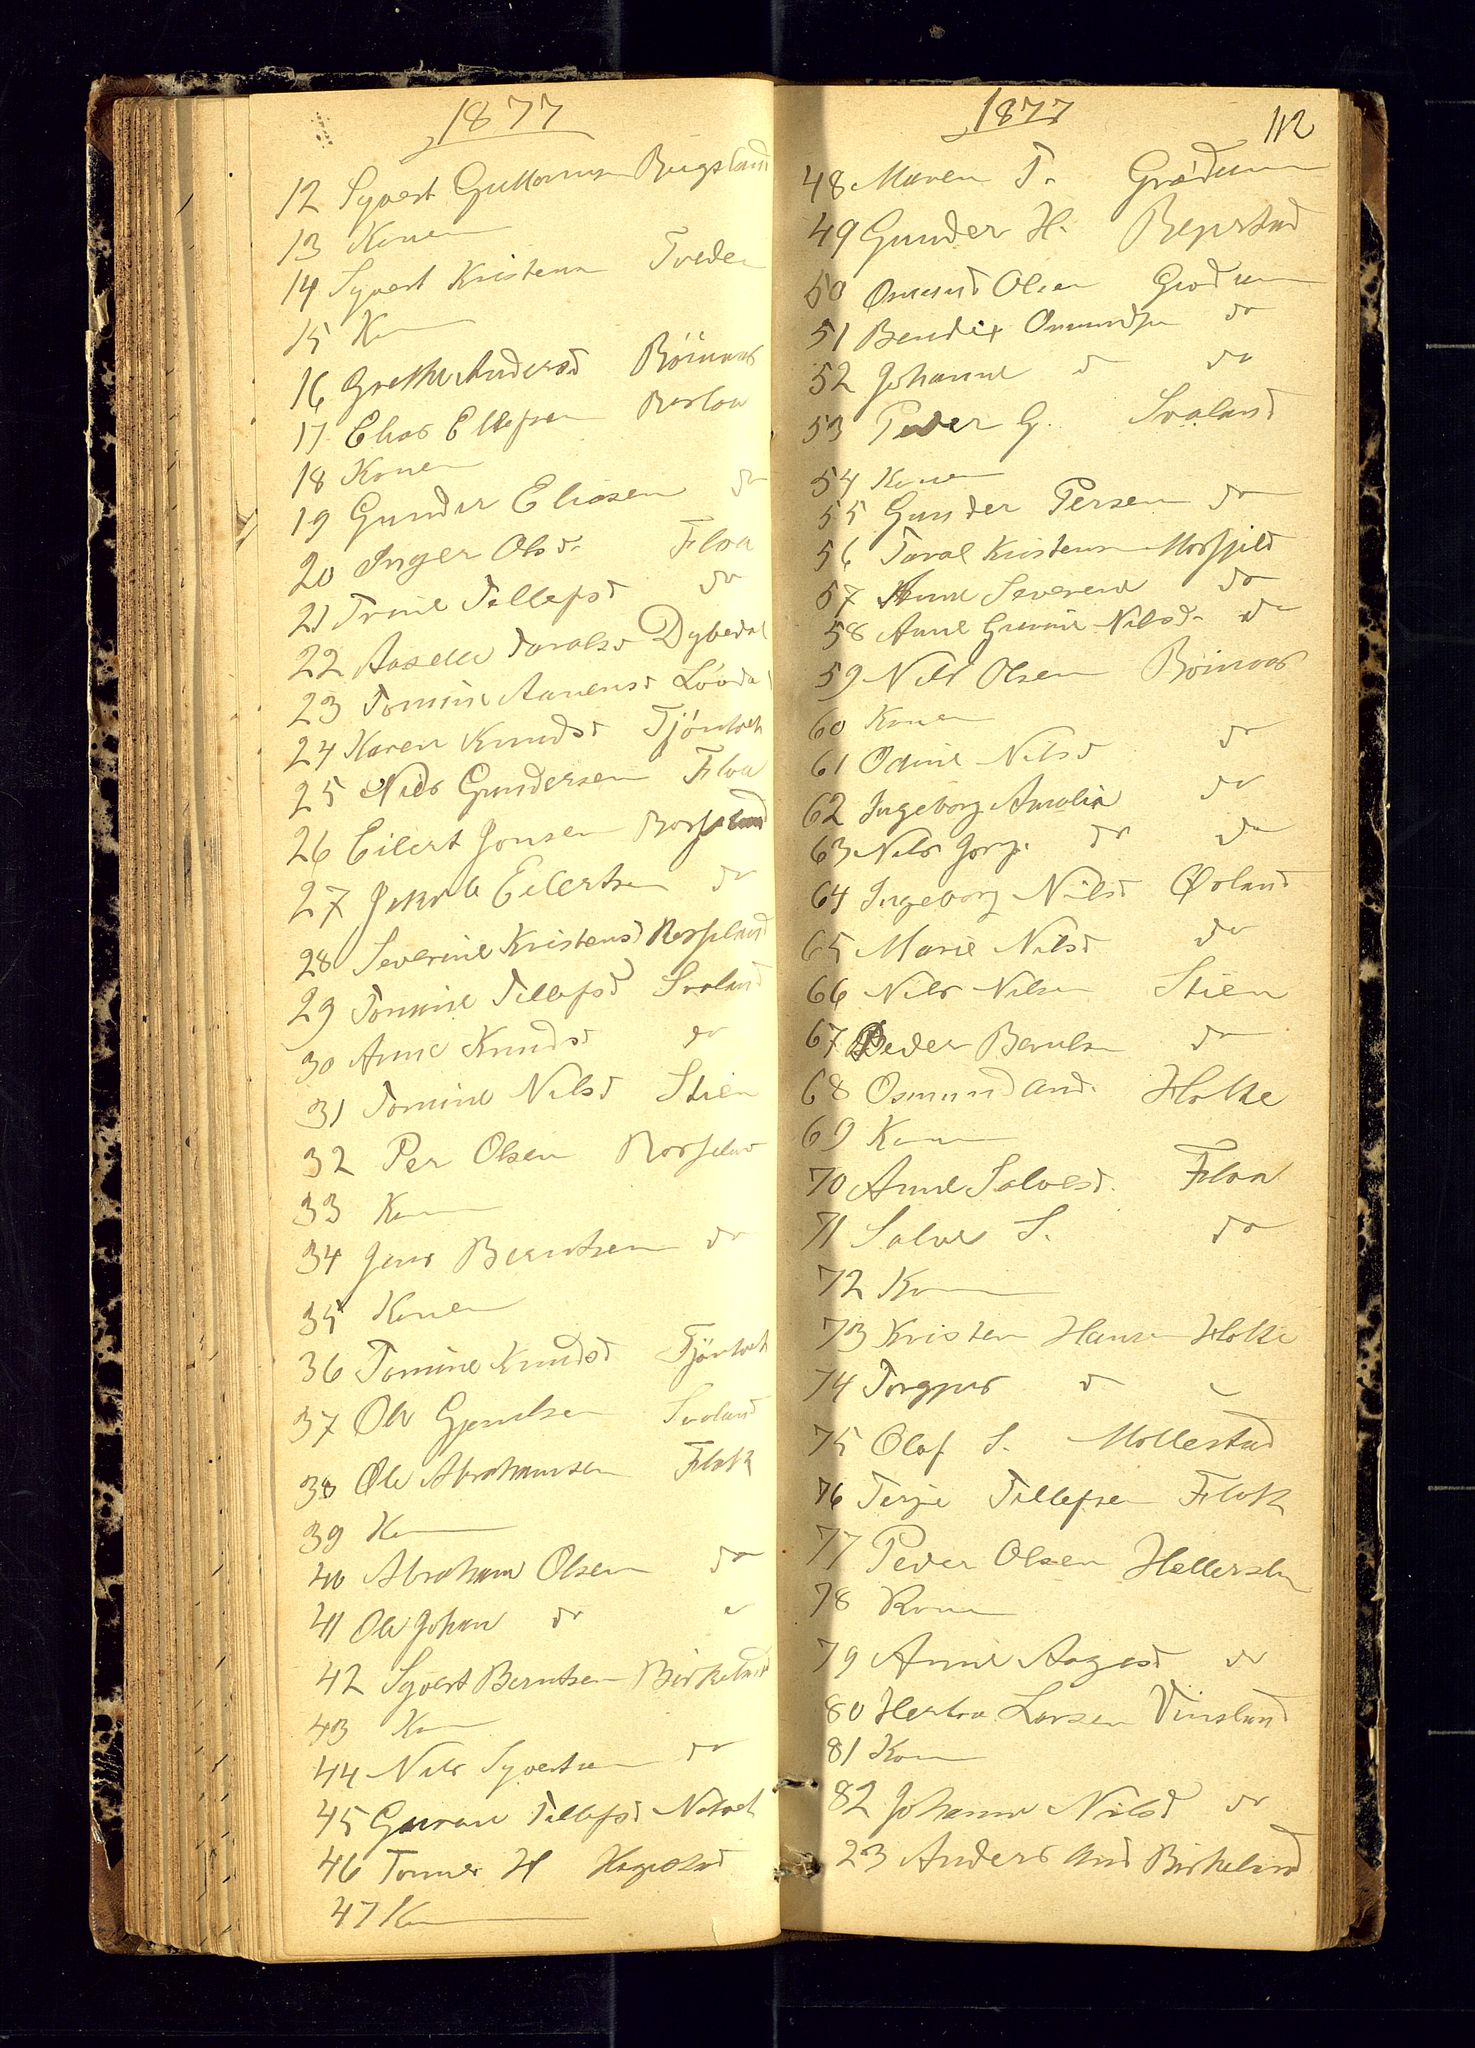 1877
12 Syvert Guttormsen Bugsland
13 Konen
14 Syvert Kristensen Tveden
15 Ko
16 Grethe Andersd Röinaas
17 Elias Ellefsen Berlou
18 Konen
19 Gunder Eliasen do
20 Inger Olsd. Floa
21 Trine Tellefsd do
22 Aasille Taralsd Dybedal
23 Tomine Aanensd Lövdal
24 Karen Knudsd Tjönvolt
25 Nils Gundersen Floa
26 Eilert Jonsen
27 Jakob Eilertsen do
28 Severine Kristensd
29 Tomine Tellefsd Svaland
30 Anne Knudsd do
31 Tomine Nilsd Stien
32 Per Olsen
33 Ko
34 Jens Berntsen do
35 Konen
36 Tomine Knudsd Tjönvolt
37 Ole Gjerulsen Svaland
38 Ole Abrahamsen Flak
39 Ko
40 Abraham Olsen do
41 Ole Johan do
42 Syvert Berntsen Birkeland
43 Ko
44 Nils Syvertsen do
45 Gurane Tellefsd
46 Tomas H
47 Ko
1877 112
48 Maren T. Grödum
49 Gunder H. Beverstad
50 Osmund Olsen Grödum
51 Bendix Osmundsen do
52 Johanne d do
53 Peder G. Svaland
54 Konen
55 Gunder Persen do
56 Taral Kristensen Mosfjeld
57 Anne Severine do
58 Anne Gurine Nilsd. do
59 Nils Olsen Röinaas
60 Konen
61 Oline Nilsd do
62 Ingeborg Amalia do
63 Nils Jörg. do do
64 Ingeborg Nilsd Övland
65 Marie Nilsd do
66 Nils Nilsen Stien
67 Peder Berulsen do
68 Osmund And. Holte
69 Konen
70 Anne Salvesd. Floa
71 Salve S. do
72 Kon
73 Kristen Hansen Holte
74 Torgjus d
75 Olaf S. Mollestad
76 Terje Tellefsen Flak
77 Peder Olsen
78 Konen
79 Anne Aagesd do
80 Larsen
81 Kon
82 Johanne Nilsd do
23 Anders And Birkeland